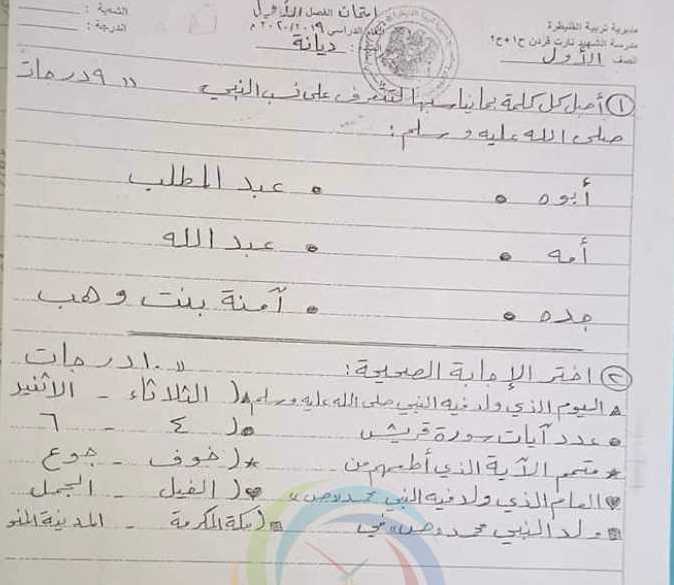 مديرية تربية القنيطرة
مدرسة الشهيد نارت قردن ح١+ح٢
الصف الأول
امتحان الفصل الأول
العام الدراسي ٢٠١٩/٢٠٢٠ م
ديانة
الشعبة :
الدرجة :
① أصل كل كلمة بما يناسبها لتتعرف على نسب النبي "٩ درجات
صلى الله عليه وسلم :
أبوه • • عبد المطلب
أمه • • عبد الله
جده • • آمنة بنت وهب
② اختر الإجابة الصحيحة: "١٠ درجات
اليوم الذي ولد فيه النبي صلى الله عليه وسلم ( الثلاثاء - الاثنين
• عدد آيات سورة قريش ( ٤ - ٦
* متمم الآية الذي أطعمهم من ( خوف - جوع
العام الذي ولد فيه النبي محمد "ص" ( الفيل - الجمل
ولد النبي محمد "ص" في ( مكة المكرمة - المدينة المنو